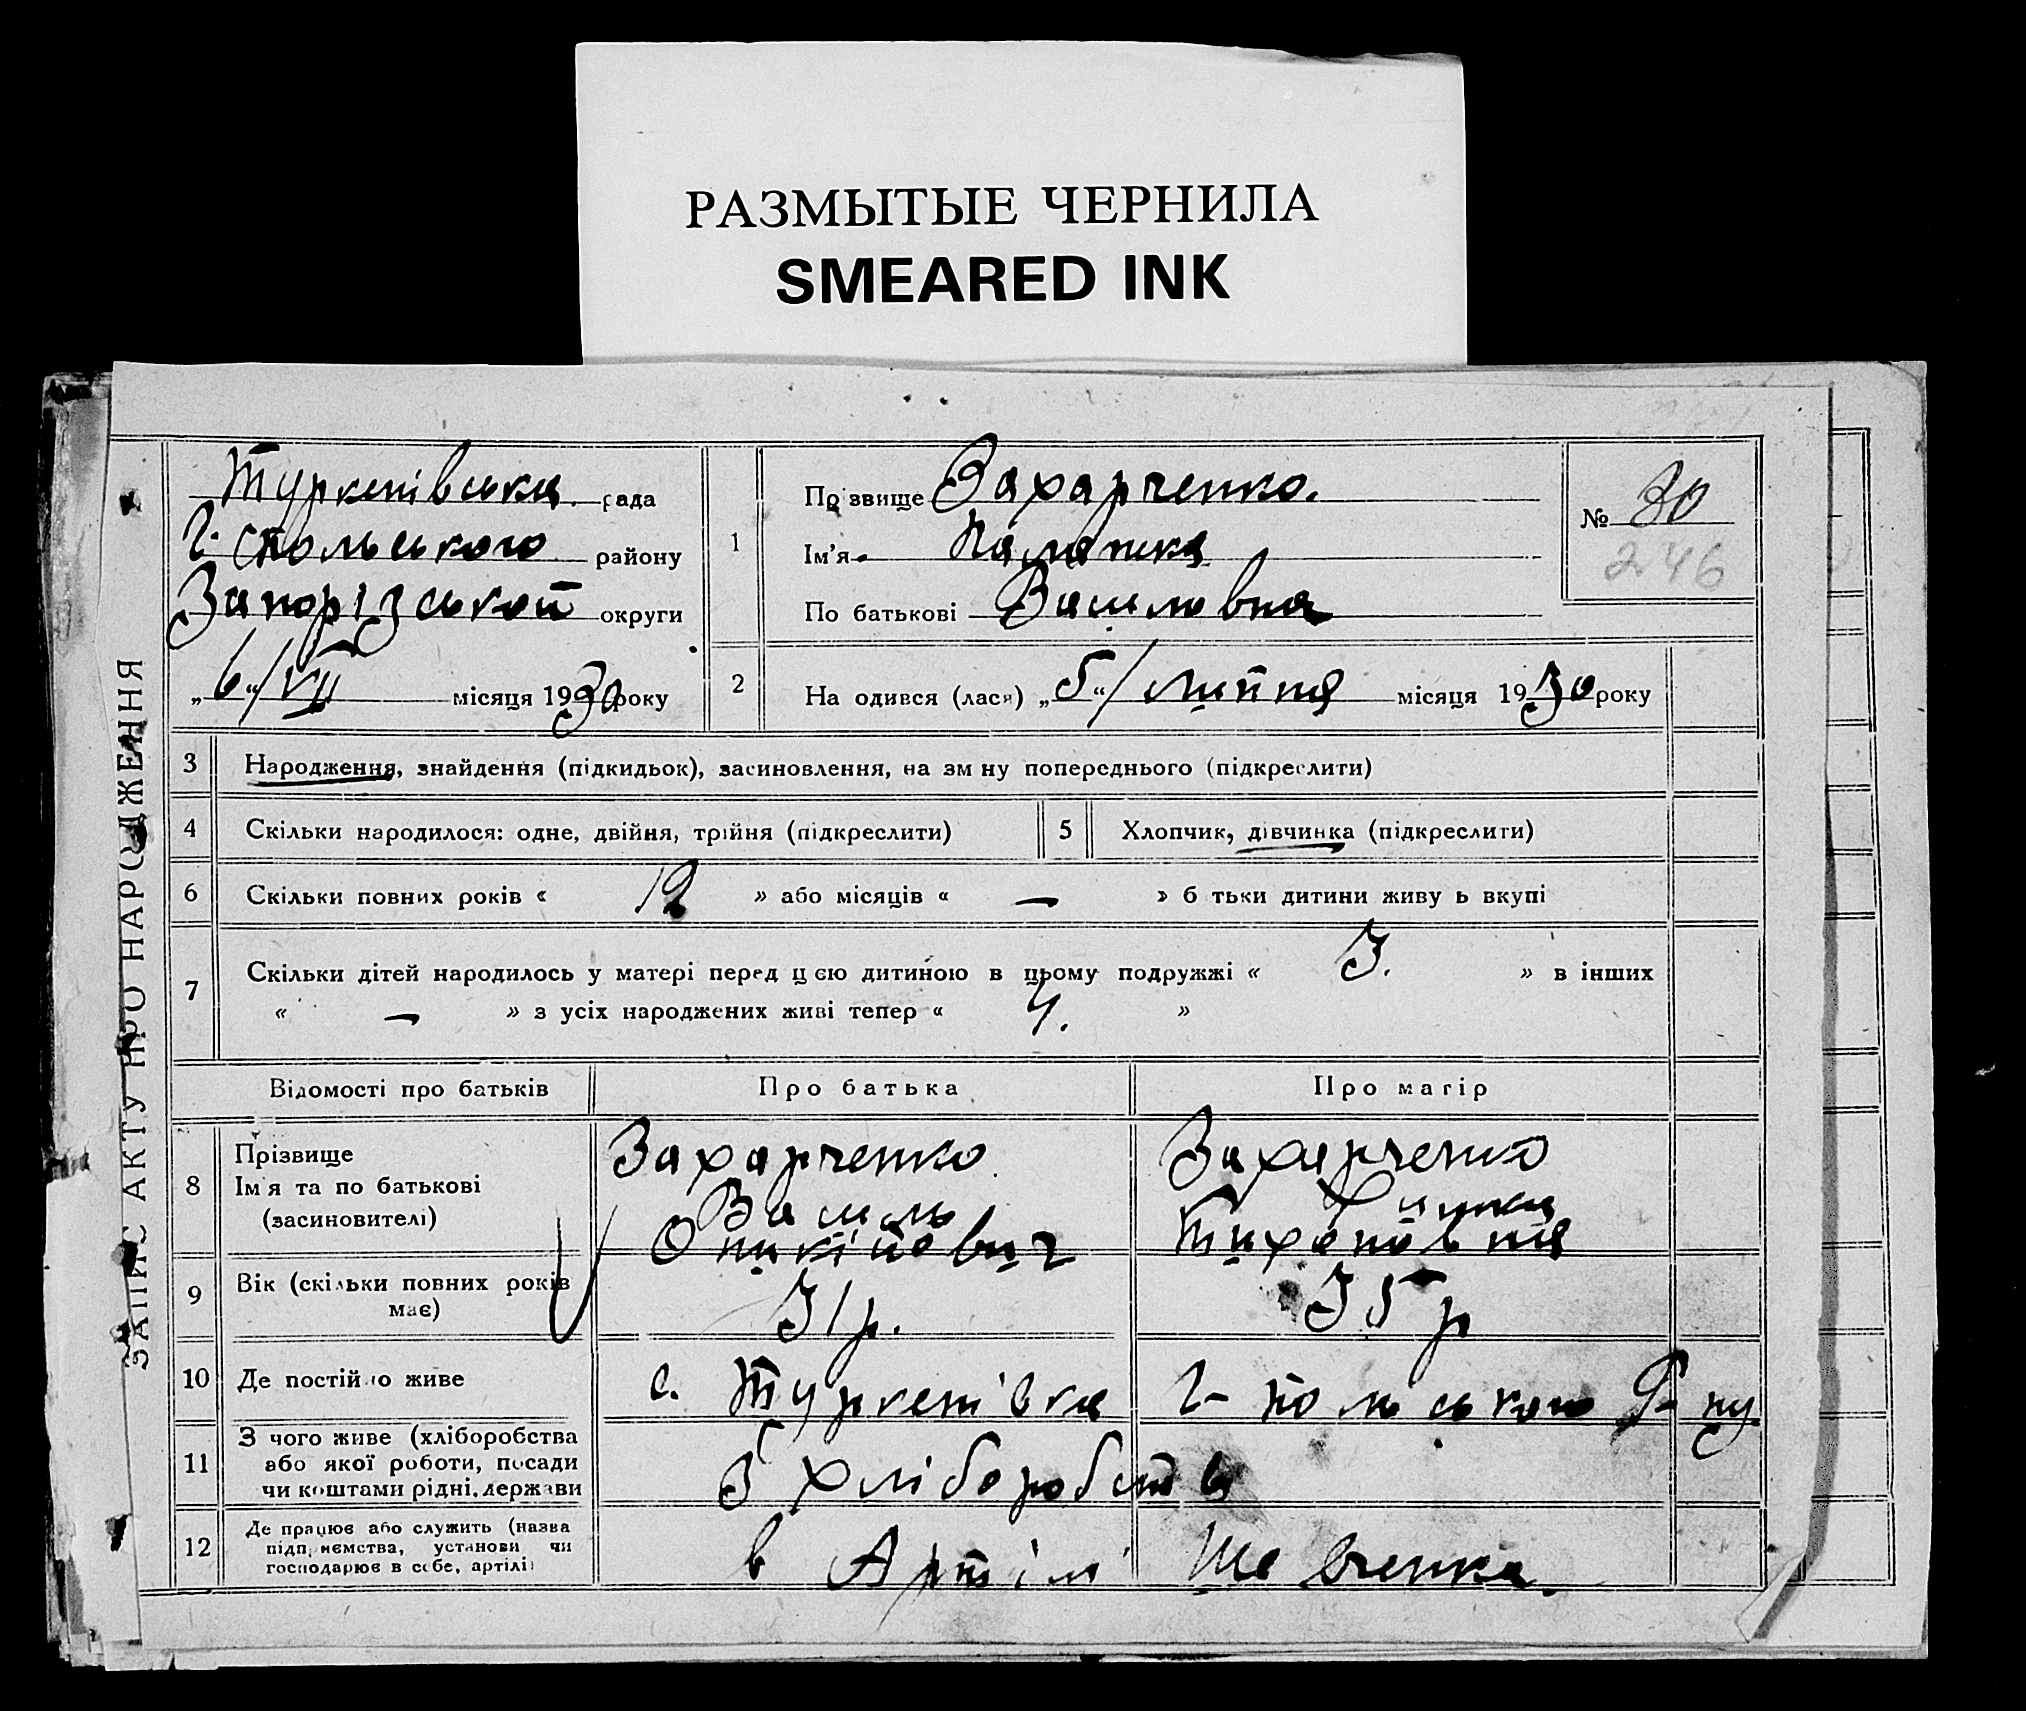 РАЗМЫТЫЕ ЧЕРНИЛА
SMEARED INK
ЗАПИС АКТУ ПРО НАРОДЖЕННЯ
Туркенівська рада
Г. Польського району
Запорізской округи
„6“/VII місяця 1930 року
1
Прізвище Захарченко.
Ім'я Палажка
По батькові Василовна
№ 30
246
2
На одився (лася) „5“/ липня місяця 1930 року
3 Народження, знайдення (підкидьок), засиновлення, на зм ну попереднього (підкреслити)
4 Скільки народилося: одне, двійня, трійня (підкреслити)
5 Хлопчик, дівчинка (підкреслити)
6 Скільки повних років « 12 » або місяців « — » б тьки дитини живу ь вкупі
7 Скільки дітей народилось у матері перед цією дитиною в цьому подружжі « 3. » в інших
« — » з усіх народжених живі тепер « 4. »
Відомості про батьків
Про батька
Про матір
8 Прізвище
Ім'я та по батькові
(засиновителі)
Захарченко
Василь
Оникійович
Захарченко
Тихоновня
9 Вік (скільки повних років
має)
31 р.
35 р
10 Де постійно живе
с. Туркенівка Г- Польського Р-ну
11 З чого живе (хліборобства
або якої роботи, посади
чи коштами рідні, держави
З хліборобства
12 Де працює або служить (назва
підприємства, установи чи
господарює в себе, артілі)
в Артілі Шевченка.